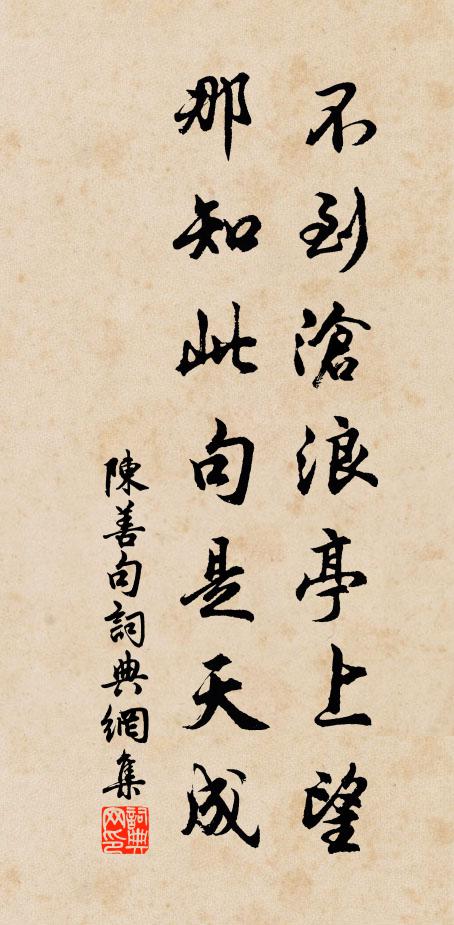 不到滄浪亭上望
那知此句是天成
陳善句詞典網集
詞典网印